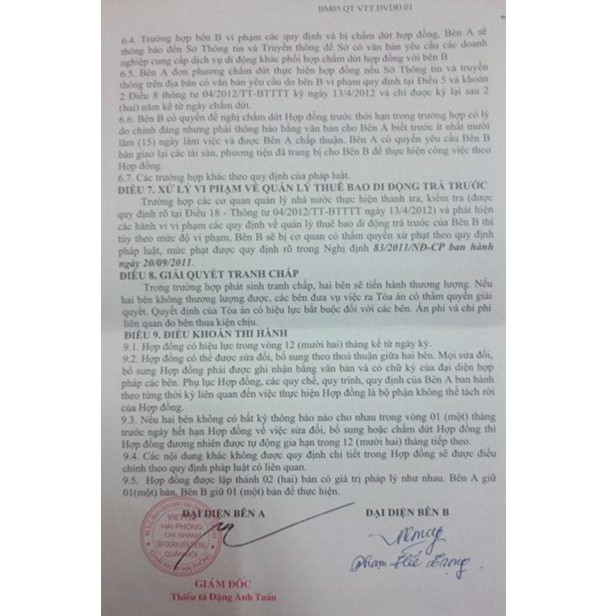 BM05.QT.VTT.DVDĐ.01
6.4. Trường hợp bên B vi phạm các quy định và bị chấm dứt hợp đồng, Bên A sẽ
thông báo đến Sở Thông tin và Truyền thông để Sở có văn bản yêu cầu các doanh
nghiệp cung cấp dịch vụ di động khác phối hợp chấm dứt hợp đồng với bên B
6.5. Bên A đơn phương chấm dứt thực hiện hợp đồng nếu Sở Thông tin và truyền
thông trên địa bàn có văn bản yêu cầu do bên B vi phạm quy định tại Điều 5 và khoản
2 Điều 8 thông tư 04/2012/TT-BTTTT ký ngày 13/4/2012 và chỉ được ký lại sau 2
(hai) năm kể từ ngày chấm dứt.
6.6. Bên B có quyền đề nghị chấm dứt Hợp đồng trước thời hạn trong trường hợp có lý
do chính đáng nhưng phải thông báo bằng văn bản cho Bên A biết trước ít nhất mười
lăm (15) ngày làm việc và được Bên A chấp thuận. Bên A có quyền yêu cầu Bên B
bàn giao lại các tài sản, phương tiện đã trang bị cho Bên B để thực hiện công việc theo
Hợp đồng.
6.7. Các trường hợp khác theo quy định của pháp luật.
ĐIỀU 7. XỬ LÝ VI PHẠM VỀ QUẢN LÝ THUÊ BAO DI ĐỘNG TRẢ TRƯỚC
Trường hợp các cơ quan quản lý nhà nước thực hiện thanh tra, kiểm tra (được
quy định rõ tại Điều 18 - Thông tư 04/2012/TT-BTTTT ngày 13/4/2012) và phát hiện
các hành vi vi phạm các quy định về quản lý thuê bao di động trả trước của Bên B thì
tùy theo mức độ vi phạm, Bên B sẽ bị cơ quan có thẩm quyền xử phạt theo quy định
pháp luật, mức phạt được quy định rõ trong Nghị định 83/2011/NĐ-CP ban hành
ngày 20/09/2011.
ĐIỀU 8. GIẢI QUYẾT TRANH CHẤP
Trong trường hợp phát sinh tranh chấp, hai bên sẽ tiến hành thương lượng. Nếu
hai bên không thương lượng được, các bên đưa vụ việc ra Tòa án có thẩm quyền giải
quyết. Quyết định của Tòa án có hiệu lực bắt buộc đối với các bên. Án phí và chi phí
liên quan do bên thua kiện chịu.
ĐIỀU 9. ĐIỀU KHOẢN THI HÀNH
9.1. Hợp đồng có hiệu lực trong vòng 12 (mười hai) tháng kể từ ngày ký.
9.2. Hợp đồng có thể được sửa đổi, bổ sung theo thoả thuận giữa hai bên. Mọi sửa đổi,
bổ sung Hợp đồng phải được ghi nhận bằng văn bản và có chữ ký của đại diện hợp
pháp các bên. Phụ lục Hợp đồng, các quy chế, quy trình, quy định của Bên A ban hành
theo từng thời kỳ liên quan đến việc thực hiện Hợp đồng là bộ phận không thể tách rời
của Hợp đồng.
9.3. Nếu hai bên không có bất kỳ thông báo nào cho nhau trong vòng 01 (một) tháng
trước ngày hết hạn Hợp đồng về việc sửa đổi, bổ sung hoặc chấm dứt Hợp đồng thì
Hợp đồng đương nhiên được tự động gia hạn trong 12 (mười hai) tháng tiếp theo.
9.4. Các nội dung khác không được quy định chi tiết trong Hợp đồng sẽ được điều
chỉnh theo quy định pháp luật có liên quan.
9.5. Hợp đồng được lập thành 02 (hai) bản có giá trị pháp lý như nhau. Bên A giữ
01(một) bản, Bên B giữ 01 (một) bản để thực hiện.
ĐẠI DIỆN BÊN A
ĐẠI DIỆN BÊN B
VIETTEL
HẢI PHÒNG
CHI NHÁNH
TẬP ĐOÀN VIỄN THÔNG
QUÂN ĐỘI
Phạm Thế Trọng
GIÁM ĐỐC
Thiếu tá Đặng Anh Tuấn